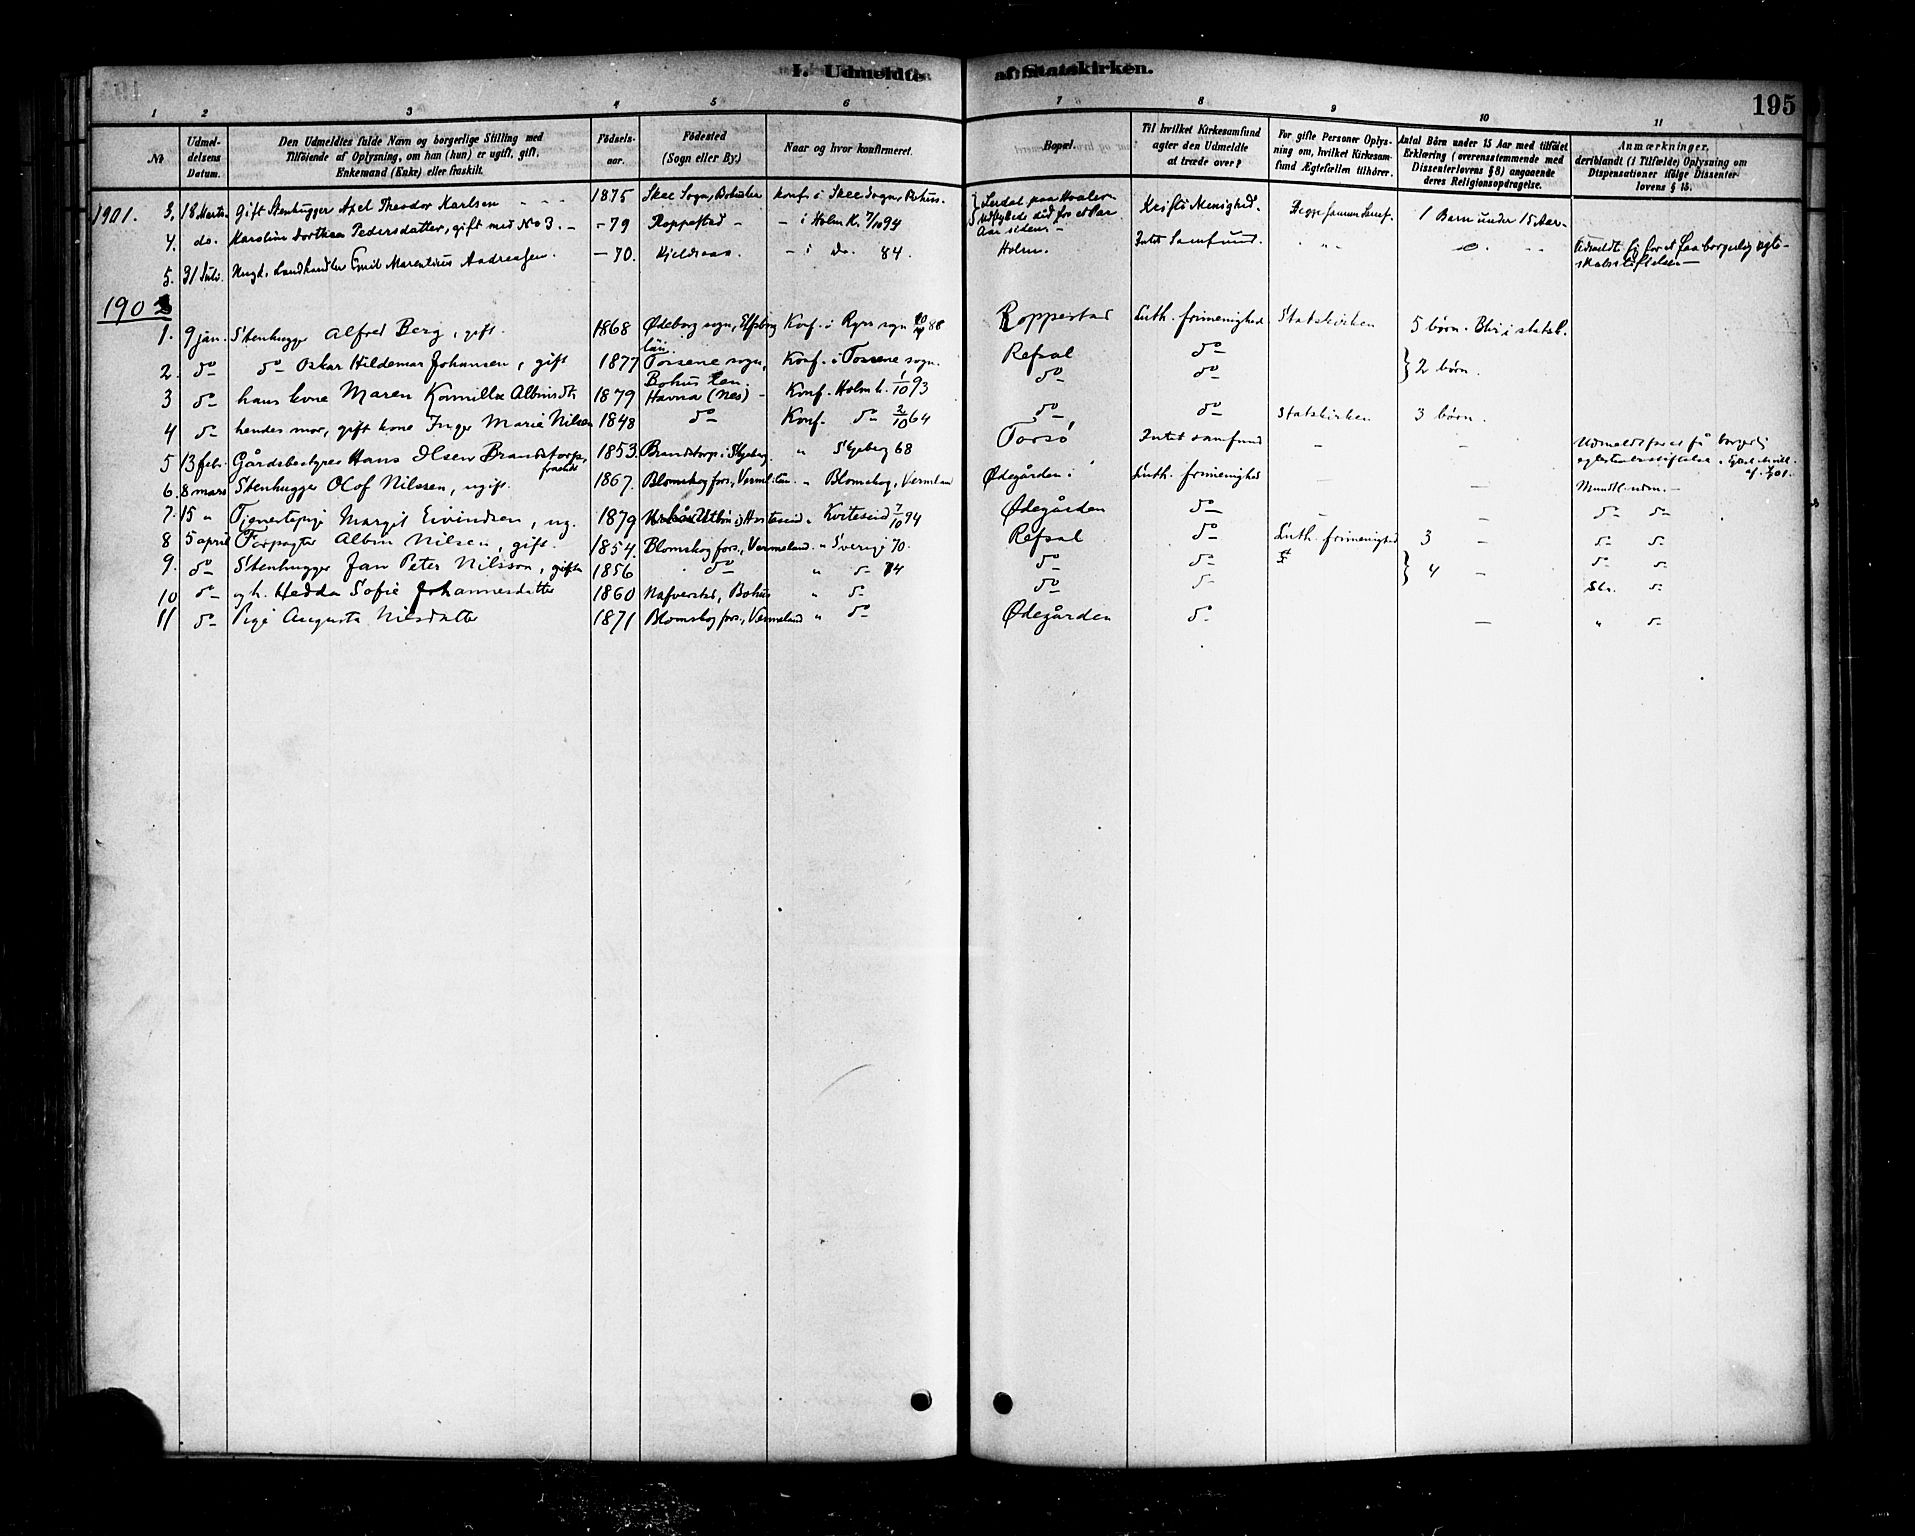 I. Udmeldte af Statskirken.
195
1 2 3 4 5 6 7 8 9 10 11
No
Udmel-
delsens
Datum.
Den Udmeldtes fulde Navn og borgerlige Stilling med
Tilföiende af Oplysning, om han (hun) er ugift, gift,
Enkemand (Enke) eller fraskilt.
Födsels-
aar.
Födested
(Sogn eller By.)
Naar og hvor konfirmeret.
Bopæl.
Til hvilket Kirkesamfund
agter den Udmeldte
at træde over?
For gifte Personer Oplys-
ning om, hvilket Kirkesam-
fund Ægtefællen tilhörer.
Antal Börn under 15 Aar med tilföiet
Erklæring (overensstemmende med
Dissenterlovens § 8) angaaende
deres Religionsopdragelse.
Anmærkninger,
deriblandt (i Tilfælde) Oplysning om
Dispensationer ifölge Dissenter-
lovens § 18.
1901. 3. 18 Marts. Gift Stenhugger Axel Theodor Karlsen - - - 1875 Skee Sogn, Bohuslen konf. i Skee Sogn, Bohus. Kristi Menighed. 1 Barn under 15 Aar.
4. do. Karoline Dorthea Pedersdatter, gift med No 3. - - 79 Roppestad - - i Holm K. 7/10 94
5. 31 Juli. Ungk. Landhandler Emil Marentius Andreasen. - 70. Kjeldraas. - i Do. 84. Holm. Intet Samfund. Udmeldt sig for at faa borgerlig ægte-
skabsstiftelse -
1902
1. 9 jan. Stenhugger Alfred Berg, gift. 1868 Ødeborg sogn, Elfsborg län. Konf. i Ryrs sogn 88 Roppestad Luth. frimenighed Statskirken 5 börn. Blir i statsk.
2. do do Oskar Hildemar Johansen, gift 1877 Tossene sogn, Bohus len. Konf. i Tossene sogn. Refsal do } 2 börn.
3 do hans kone Maren Kornillæ Albinsdtr 1879 Havna (Nes) - Konf. Holm k. 1/10 93 do do
4 do hendes mor, gift kone Inger Marie Nilsen 1848 do Konf. do 2/10 64 do do Statskirken 3 börn.
5 13 febr. Gårdsbestyrer Hans Olsen Brandstorp, fraskilt 1853. Brandstorp i Skjeberg. " Skjeberg 68 Torsö Intet samfund - - Udmeldt for at få borgerlig
6. 8 mars Stenhugger Olof Nilssen, ugift. 1867. Blomskog fors., Verml. län. " Blomskog, Vermland Ødegården Luth. frimenighed - - Mundtl. udm. -
7. 15 " Tjenestepige Margit Eivindsen, ug. 1879 Hviteseid " Kviteseid 7/10 94 Ødegården do - - do do
8 5 april Forpagter Albin Nilsen, gift. 1854. Blomskog fors., Vermeland. " Sverige 70. Refsal do Luth. frimenighed 3 - do do
9. do Stenhugger Jan Peter Nilsson, gift 1856 do " do 74 do do } 4 - do do
10 do og h. Hedda Sofie Johannesdatter 1860 Nafverstad, Bohus " do do do Skr. do
11 do Pige Augusta Nilsdatter 1871 Blomskog fors., Vermeland " do Ødegården do - " do